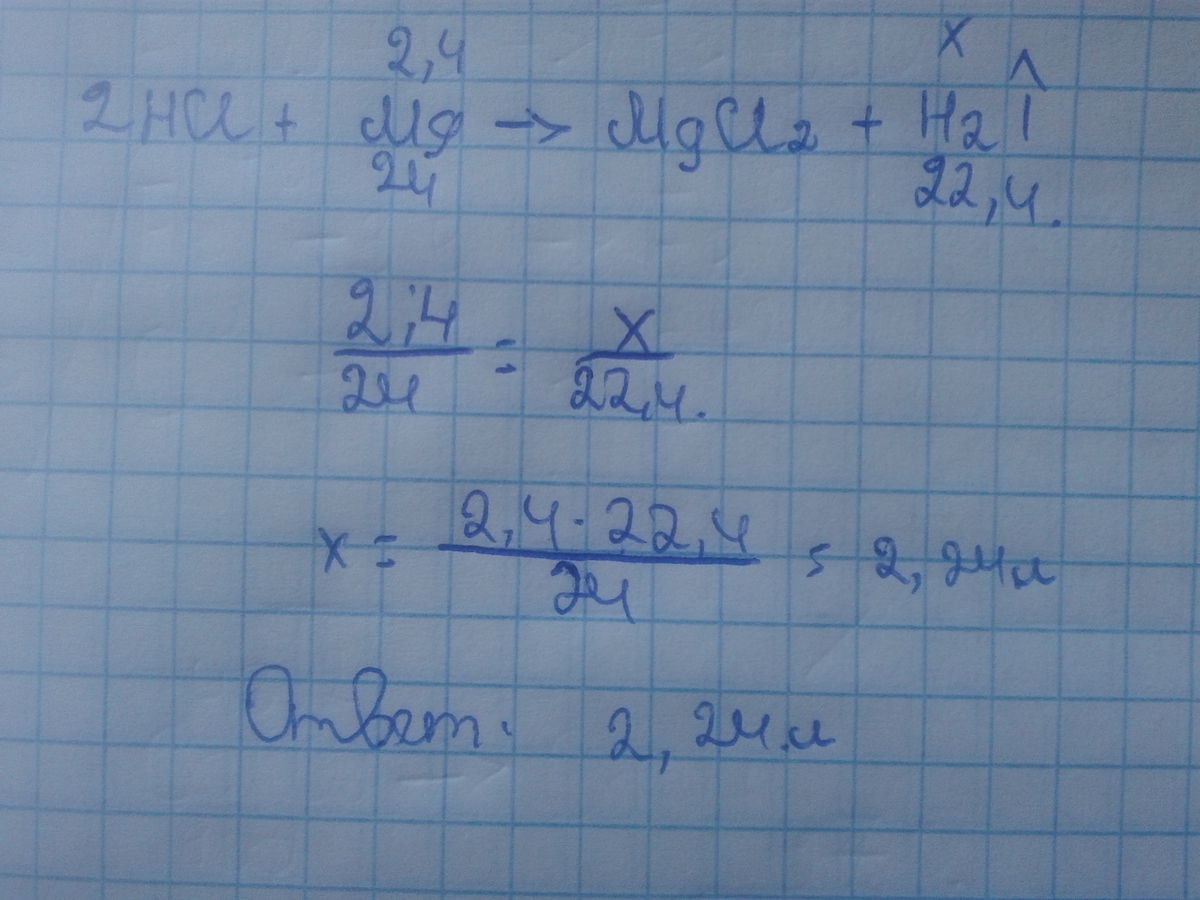 2,4 x
2HCl + Mg → MgCl2 + H2↑
24 22,4.
2,4 / 24 = x / 22,4.
x = 2,4 · 22,4 / 24 = 2,24 л
Ответ: 2,24 л